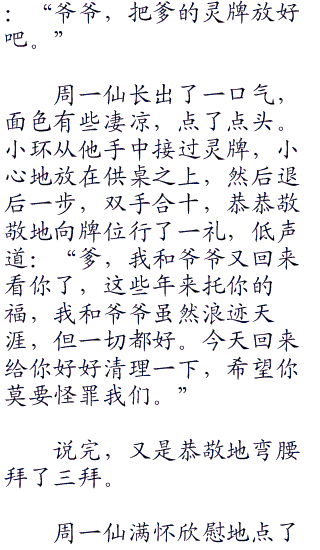 ：“爷爷，把爹的灵牌放好
吧。”
周一仙长出了一口气，
面色有些凄凉，点了点头。
小环从他手中接过灵牌，小
心地放在供桌之上，然后退
后一步，双手合十，恭恭敬
敬地向牌位行了一礼，低声
道：“爹，我和爷爷又回来
看你了，这些年来托你的
福，我和爷爷虽然浪迹天
涯，但一切都好。今天回来
给你好好清理一下，希望你
莫要怪罪我们。”
说完，又是恭敬地弯腰
拜了三拜。
周一仙满怀欣慰地点了